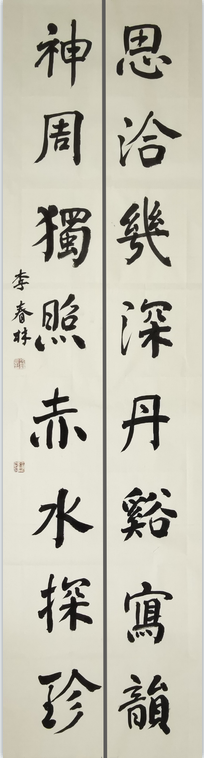 思洽幾深丹谿寫韻
神周獨照赤水探珍
李春林